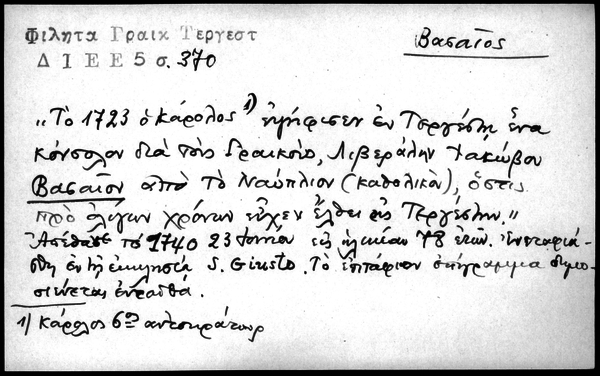 Φιλητα Γραικ Τεργεστ
Βασαῖος
Δ Ι Ε Ε 5 σ. 370
„Τὸ 1723 ὁ Κάρολος 1) ἐψήφισεν ἐν Τεργέστῃ ἕνα
κόνσολον διὰ τοὺς Γραικούς, Λιβεράλην Ἰακώβου
Βασαῖον ἀπὸ τὸ Ναύπλιον (καθολικὸν), ὅστις
πρὸ ὀλίγων χρόνων εἶχεν ἔλθει εἰς Τεργέστην."
Ἀπέθανε τὸ 1740 23 εἰς ἡλικίαν 78 ἐτῶν. Ἐνεταφιά-
σθη ἐν τῇ ἐκκλησίᾳ S. Giusto. Τὸ ἐπιτάφιον ἐπίγραμμα δημο-
σιεύεται ἐνταῦθα.
1) Κάρολος 6ος αὐτοκράτωρ